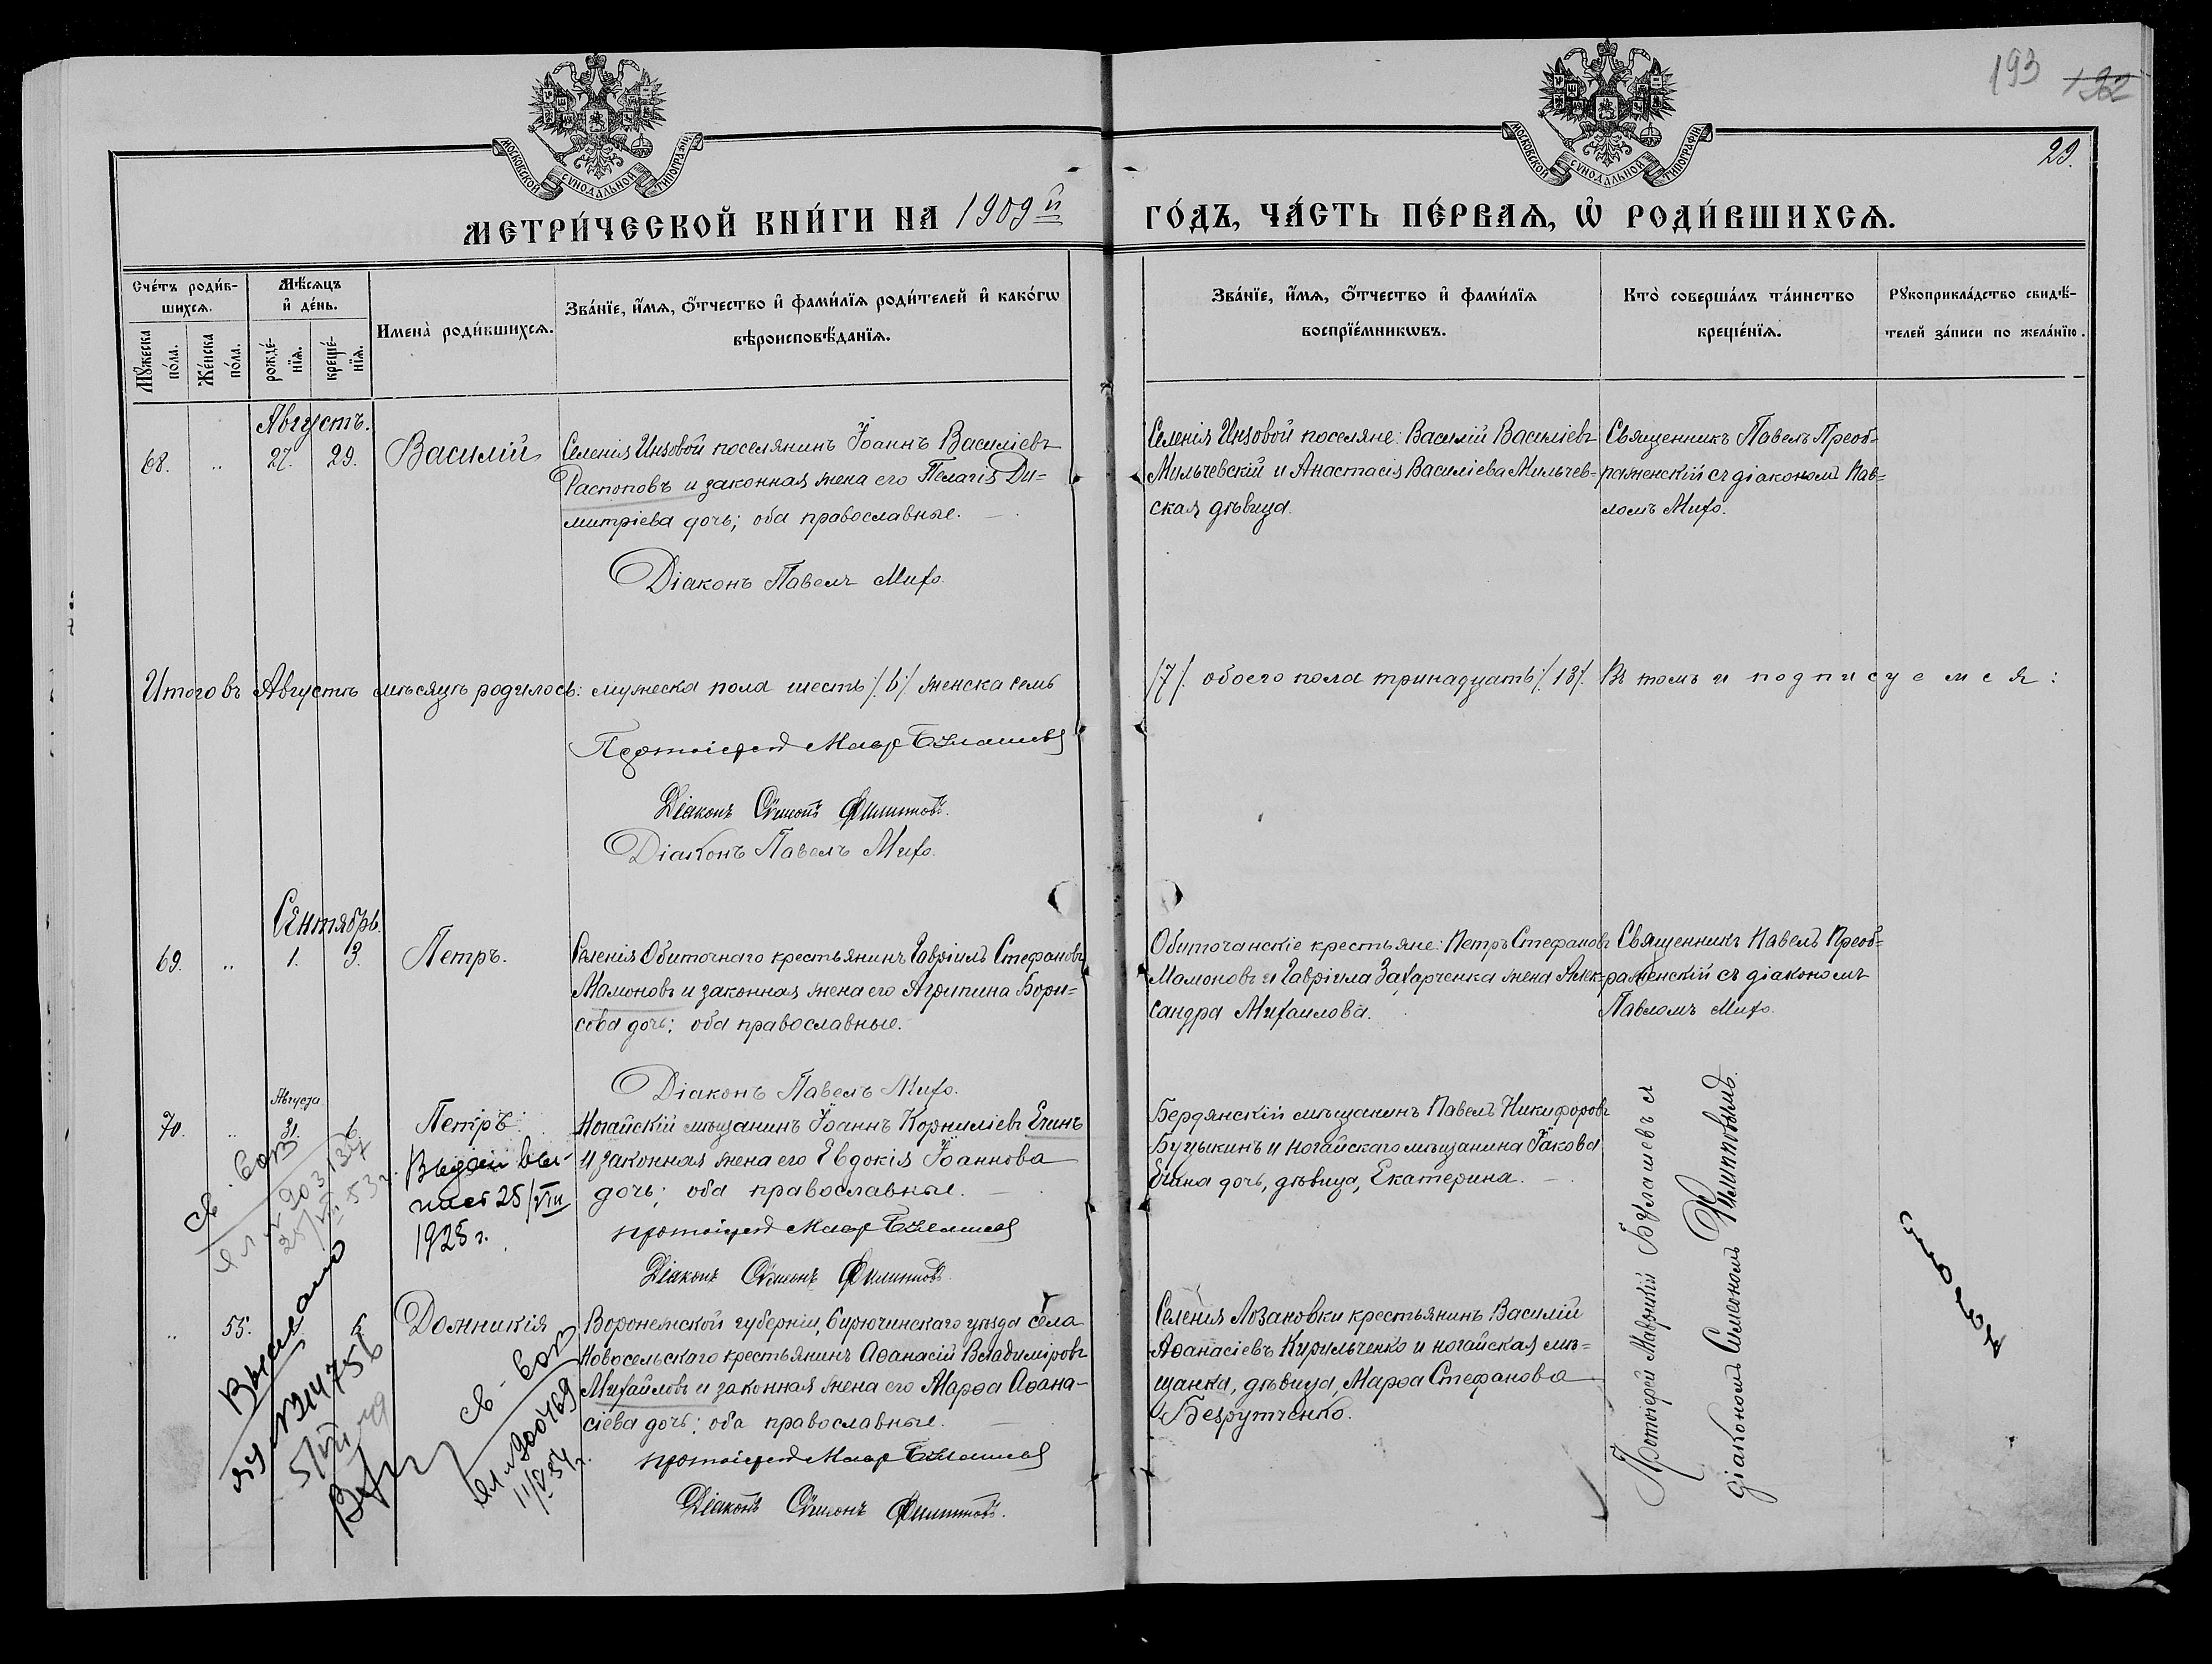 193 192
29.
МОСКОВСКОЙ СѴНОДАЛЬНОЙ ТИПОГРАФІИ
МОСКОВСКОЙ СѴНОДАЛЬНОЙ ТИПОГРАФІИ
МЕТРИ́ЧЕСКОЙ КНИ́ГИ НА 1909й ГО́ДЪ, ЧА́СТЬ ПЕ́РВАѦ, Ѡ҆ РОДИ́ВШИХСѦ.
Сче́тъ роди́в-
шихсѧ.
Мꙋжеска по́ла.
Же́нска по́ла.
Мѣ́сѧцъ
и҆ де́нь.
рожде́-
нїѧ.
креще́-
нїѧ.
Имена̀ роди́вшихсѧ.
Зва́нїе, и҆́мѧ, ѻ҆́тчество и҆ фами́лїѧ роди́телей и҆ како́гѡ
вѣроисповѣ́данїѧ.
Зва́нїе, и҆́мѧ, ѻ҆́тчество и҆ фами́лїѧ
воспрїе́мникѡвъ.
Кто̀ соверша́лъ та́инство
креще́нїѧ.
Рꙋкоприкла́дство свидѣ́-
телей за́писи по жела́нїю.
Августъ.
68. „ 27. 29. Василій
Селенія Инзовой поселянинъ Іоаннъ Василіевъ
Распоповъ и законная жена его Пелагія Ди-
митріева дочь; оба православные.
Діаконъ Павелъ Михо.
Селенія Инзовой поселяне: Василій Василіевъ
Мильчевскій и Анастасія Василіева Мильчев-
ская дѣвица.
Священникъ Павелъ Преоб-
раженскій съ діакономъ Пав-
ломъ Михо.
Итого въ Августѣ мѣсяцѣ родилось: мужеска пола шесть /6/ женска семь /7/. обоего пола тринадцать /13/. Въ томъ и подписуемся:
Протоіерей Мавр Булашевъ
Діаконъ Сѵмеонъ Филипповъ.
Діаконъ Павелъ Михо.
Сентябрь.
69. „ 1. 3. Петръ.
Селенія Обиточнаго крестьянинъ Гавріилъ Стефановъ
Мамоновъ и законная жена его Агрипина Бори-
сова дочь; оба православные.
Діаконъ Павелъ Михо.
Обиточанскіе крестьяне: Петръ Стефановъ
Мамоновъ и Гавріила Захарченка жена Алек-
сандра Михаилова.
Священникъ Павелъ Преоб-
раженскій съ діакономъ
Павломъ Михо.
Августа
70. „ 31. 6. Петръ
Ногайскій мѣщанинъ Іоаннъ Корниліевъ Епинъ
и законная жена его Евдокія Іоаннова
дочь; оба православные.
протоіерей Мавр Булашевъ
Діаконъ Сѵмеонъ Филипповъ.
Выдан вы-
пись 25/VIII
1925 г.
Бердянскій мѣщанинъ Павелъ Никифоровъ
Буцыкинъ и ногайскаго мѣщанина Іакова
Епина дочь, дѣвица, Екатерина.
Протоіерей Маврикій Булашевъ съ
діакономъ Симеономъ Филипповымъ.
„ 55. 5. 6 Домникія
Воронежской губерніи, Бирючинскаго уѣзда села
Новосельскаго крестьянинъ Аѳанасій Владиміровъ
Михайловъ и законная жена его Марѳа Аѳана-
сіева дочь; оба православные.
протоіерей Мавр Булашевъ
Діаконъ Сѵмеонъ Филипповъ.
Селенія Лозановки крестьянинъ Василій
Аѳанасіевъ Кирильченко и ногайская мѣ-
щанка, дѣвица, Марѳа Стефанова
Безрутченко.
Выслано
5/VII 49
11/V 54 г.